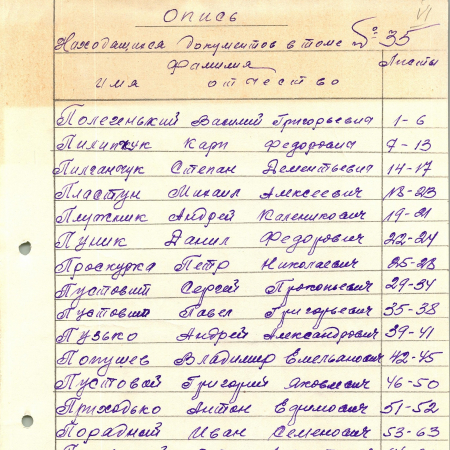 Опись
Находащихся документов в томе № 35
Фамилия Листы
имя отчество
Полегенький Василий Григорьевич 1-6
Пилипчук Карп Федорович 7-13
Пилганчук Степан Дементьевич 14-17
Пластун Михаил Алексеевич 18-23
Плужник Андрей Каленикович 19-21
Пуник Данил Федорович 22-24
Проскурка Петр Николаевич 25-28
Пустовит Сергей Прокопьевич 29-34
Пустовит Павел Григорьевич 35-38
Пузько Андрей Александрович 39-41
Попушев Владимир Емельянович 42-45
Пустовой Григорий Яковлевич 46-50
Приходько Антон Ефимович 51-52
Порадный Иван Семенович 53-63